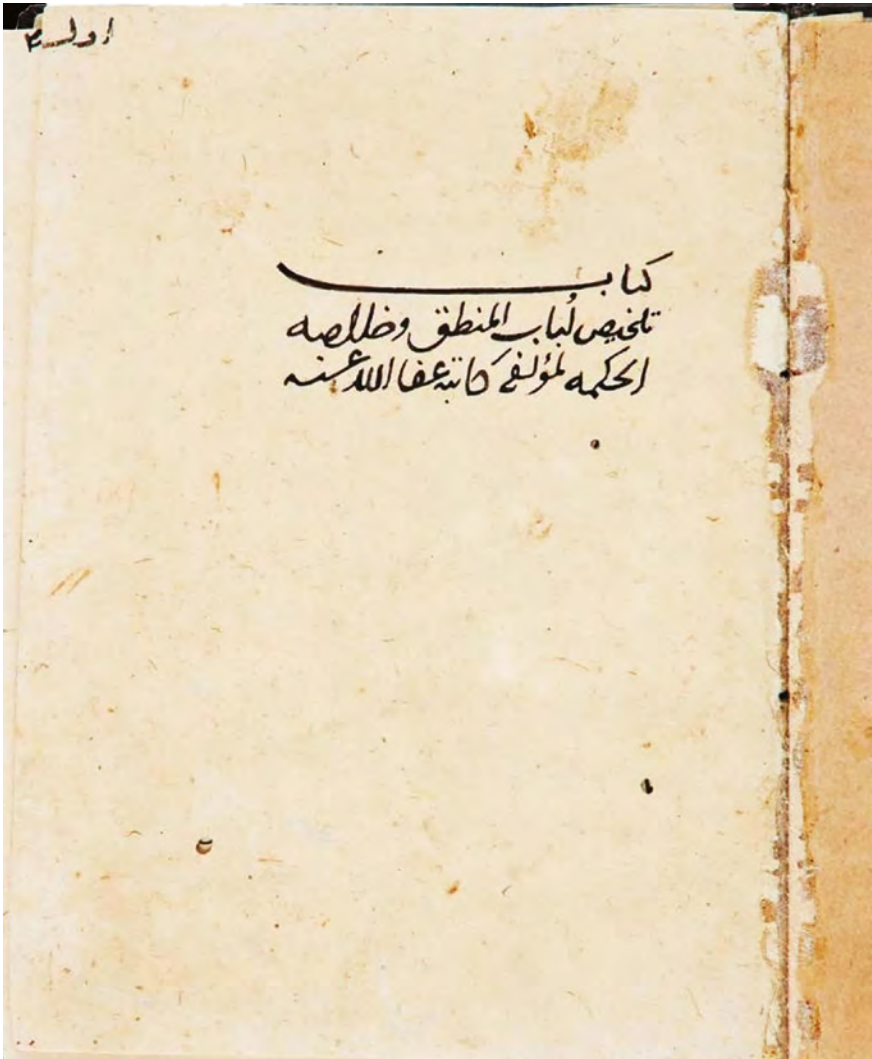 اول
كتاب
تلخيص لُباب المنطق وخلاصه
الحكمه لمؤلفه كاتبه عفا الله عنه